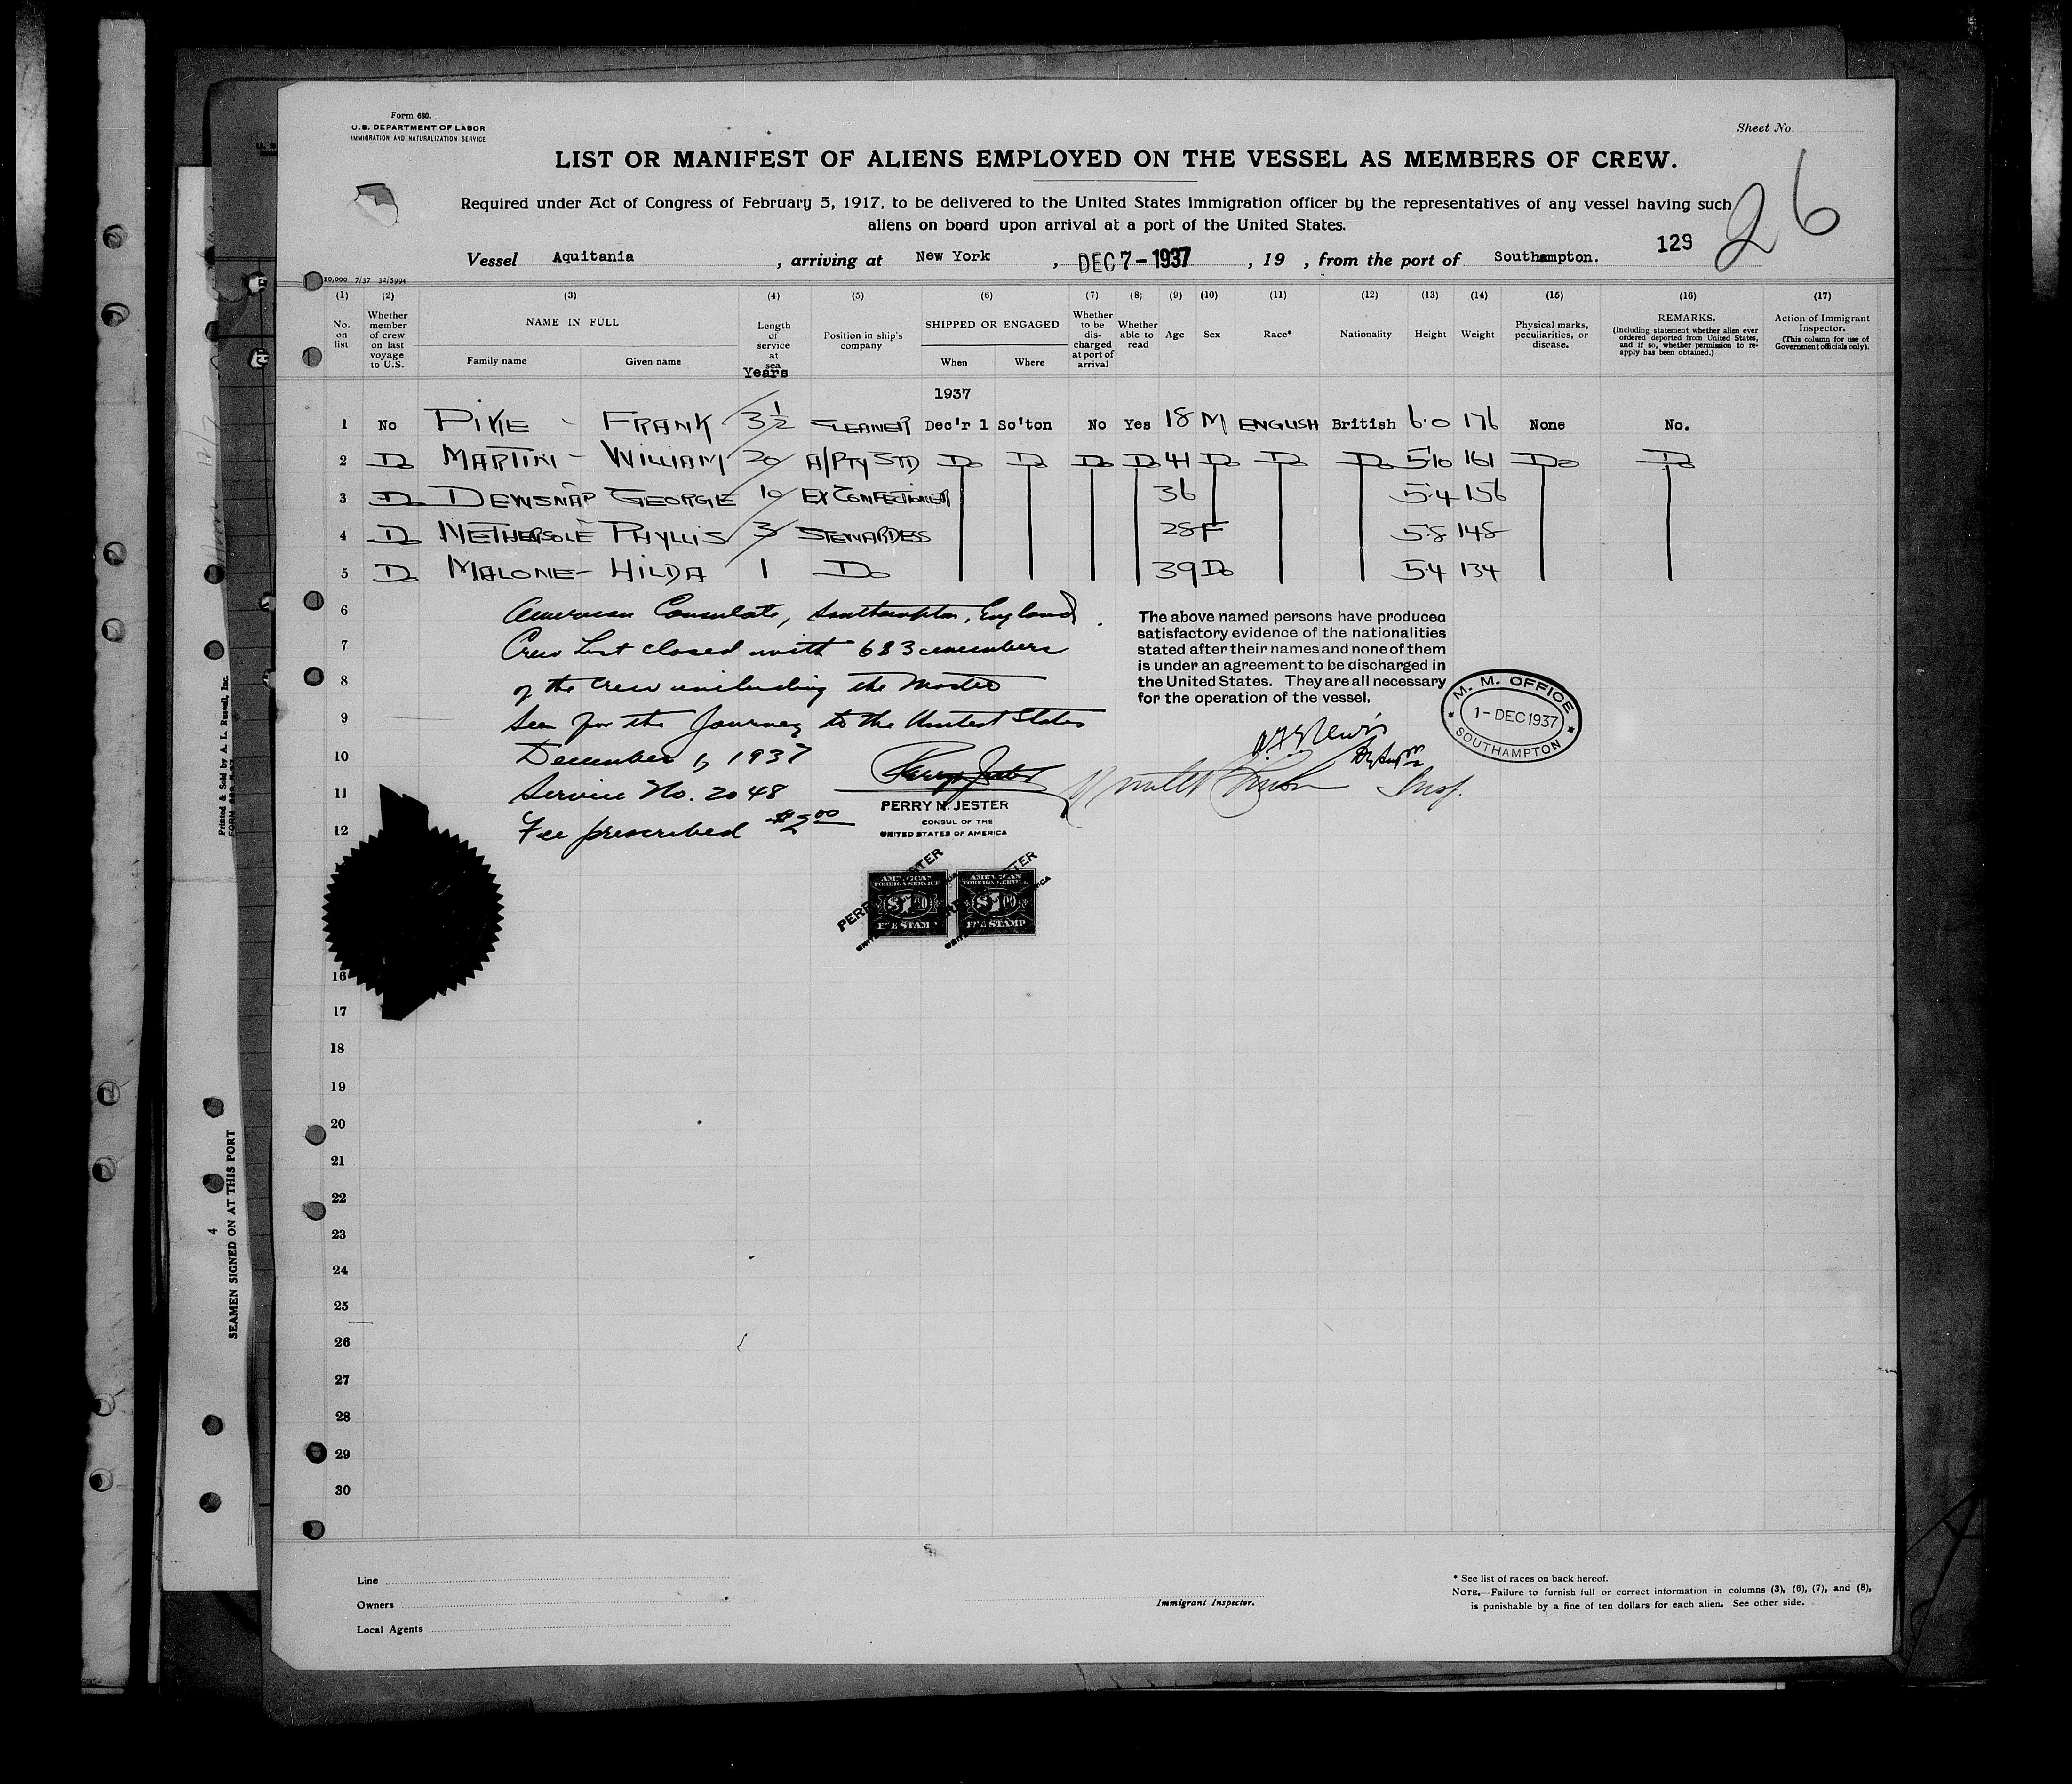 Form 680.
U.S. DEPARTMENT OF LABOR
IMMIGRATION AND NATURALIZATION SERVICE
Sheet No.
LIST OR MANIFEST OF ALIENS EMPLOYED ON THE VESSEL AS MEMBERS OF CREW.
26
Required under Act of Congress of February 5, 1917, to be delivered to the United States immigration officer by the representatives of any vessel having such
aliens on board upon arrival at a port of the United States.
129
Vessel Aquitania , arriving at New York , DEC 7 - 1937 , 19 , from the port of Southampton.
10,000 7/37 32/5994
(1) (2) (3) (4) (5) (6) (7) (8) (9) (10) (11) (12) (13) (14) (15) (16) (17)
No. on list
Whether member of crew on last voyage to U.S.
NAME IN FULL
Family name Given name
Length of service at sea
Years
Position in ship's company
SHIPPED OR ENGAGED
When Where
Whether to be discharged at port of arrival
Whether able to read
Age
Sex
Race*
Nationality
Height
Weight
Physical marks, peculiarities, or disease.
REMARKS.
(Including statement whether alien ever ordered deported from United States, and if so, whether permission to re-apply has been obtained.)
Action of Immigrant Inspector.
(This column for use of Government officials only).
1937
1 No PIKE - FRANK 3 1/2 CLEANER Dec'r 1 So'ton No Yes 18 M ENGLISH British 6.0 176 None No.
2 Do MARTIN - WILLIAM 20 A/PTY STD Do Do Do Do 41 Do Do Do 5.10 161 Do Do
3 Do DEWSNAP GEORGE 10 EX CONFECTIONER 36 5.4 156
4 Do METHERSOLE PHYLLIS 3 STEWARDESS 28 F 5.8 148
5 Do MALONE - HILDA 1 Do 39 Do 5.4 134
6 American Consulate, Southampton, England.
7 Crew List closed with 683 members
8 of the crew including the Master
9 Seen for the Journey to the United States
10 December 1, 1937
11 Service No. 2048
12 Fee prescribed $2.00
The above named persons have produced
satisfactory evidence of the nationalities
stated after their names and none of them
is under an agreement to be discharged in
the United States. They are all necessary
for the operation of the vessel.
M. M. OFFICE
1 - DEC 1937
SOUTHAMPTON
Insp.
PERRY N. JESTER
CONSUL OF THE
UNITED STATES OF AMERICA
AMERICAN FOREIGN SERVICE $1.00 FEE STAMP
AMERICAN FOREIGN SERVICE $1.00 FEE STAMP
16
17
18
19
20
21
22
23
24
25
26
27
28
29
30
Line
Owners
Local Agents
Immigrant Inspector.
* See list of races on back hereof.
NOTE.—Failure to furnish full or correct information in columns (3), (6), (7), and (8),
is punishable by a fine of ten dollars for each alien. See other side.
Printed & Sold by A. L. Russell, Inc.
4
SEAMEN SIGNED ON AT THIS PORT